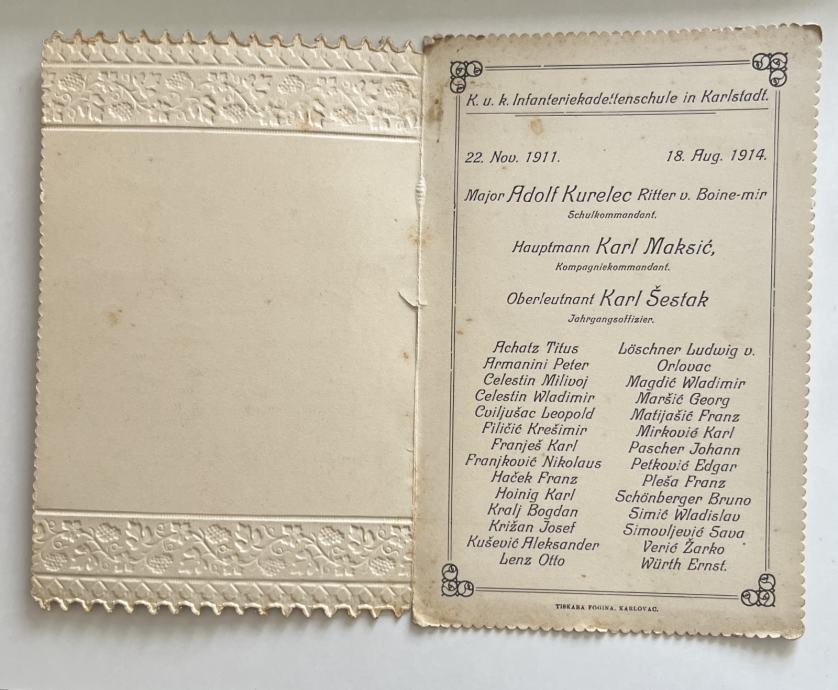 K. u. k. Infanteriekadettenschule in Karlstadt.
22. Nov. 1911. 18. Aug. 1914.
Major Adolf Kurelec Ritter v. Boine-mir
Schulkommandant.
Hauptmann Karl Maksić,
Kompagniekommandant.
Oberleutnant Karl Šestak
Jahrgangsoffizier.
Achatz Titus
Armanini Peter
Celestin Milivoj
Celestin Wladimir
Cviljušac Leopold
Filičić Krešimir
Franješ Karl
Franjković Nikolaus
Haček Franz
Hoinig Karl
Kralj Bogdan
Križan Josef
Kušević Aleksander
Lenz Otto
Löschner Ludwig v.
Orlovac
Magdić Wladimir
Maršić Georg
Matijašić Franz
Mirković Karl
Pascher Johann
Petković Edgar
Pleša Franz
Schönberger Bruno
Simić Wladislav
Simovljević Sava
Verić Žarko
Würth Ernst.
TISKARA FOGINA, KARLOVAC.